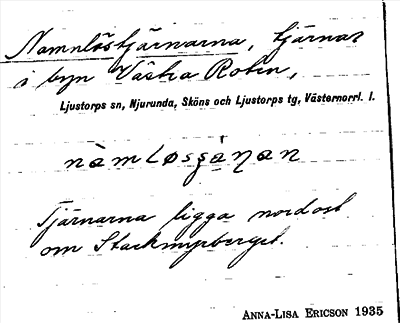 Namnlöstjärnarna, tjärnar
i byn Västra Roten,
Ljustorps sn, Njurunda, Sköns och Ljustorps tg, Västernorrl. l.
Tjärnarna ligga nordost
om Stackmyrberget.
ANNA-LISA ERICSON 1935